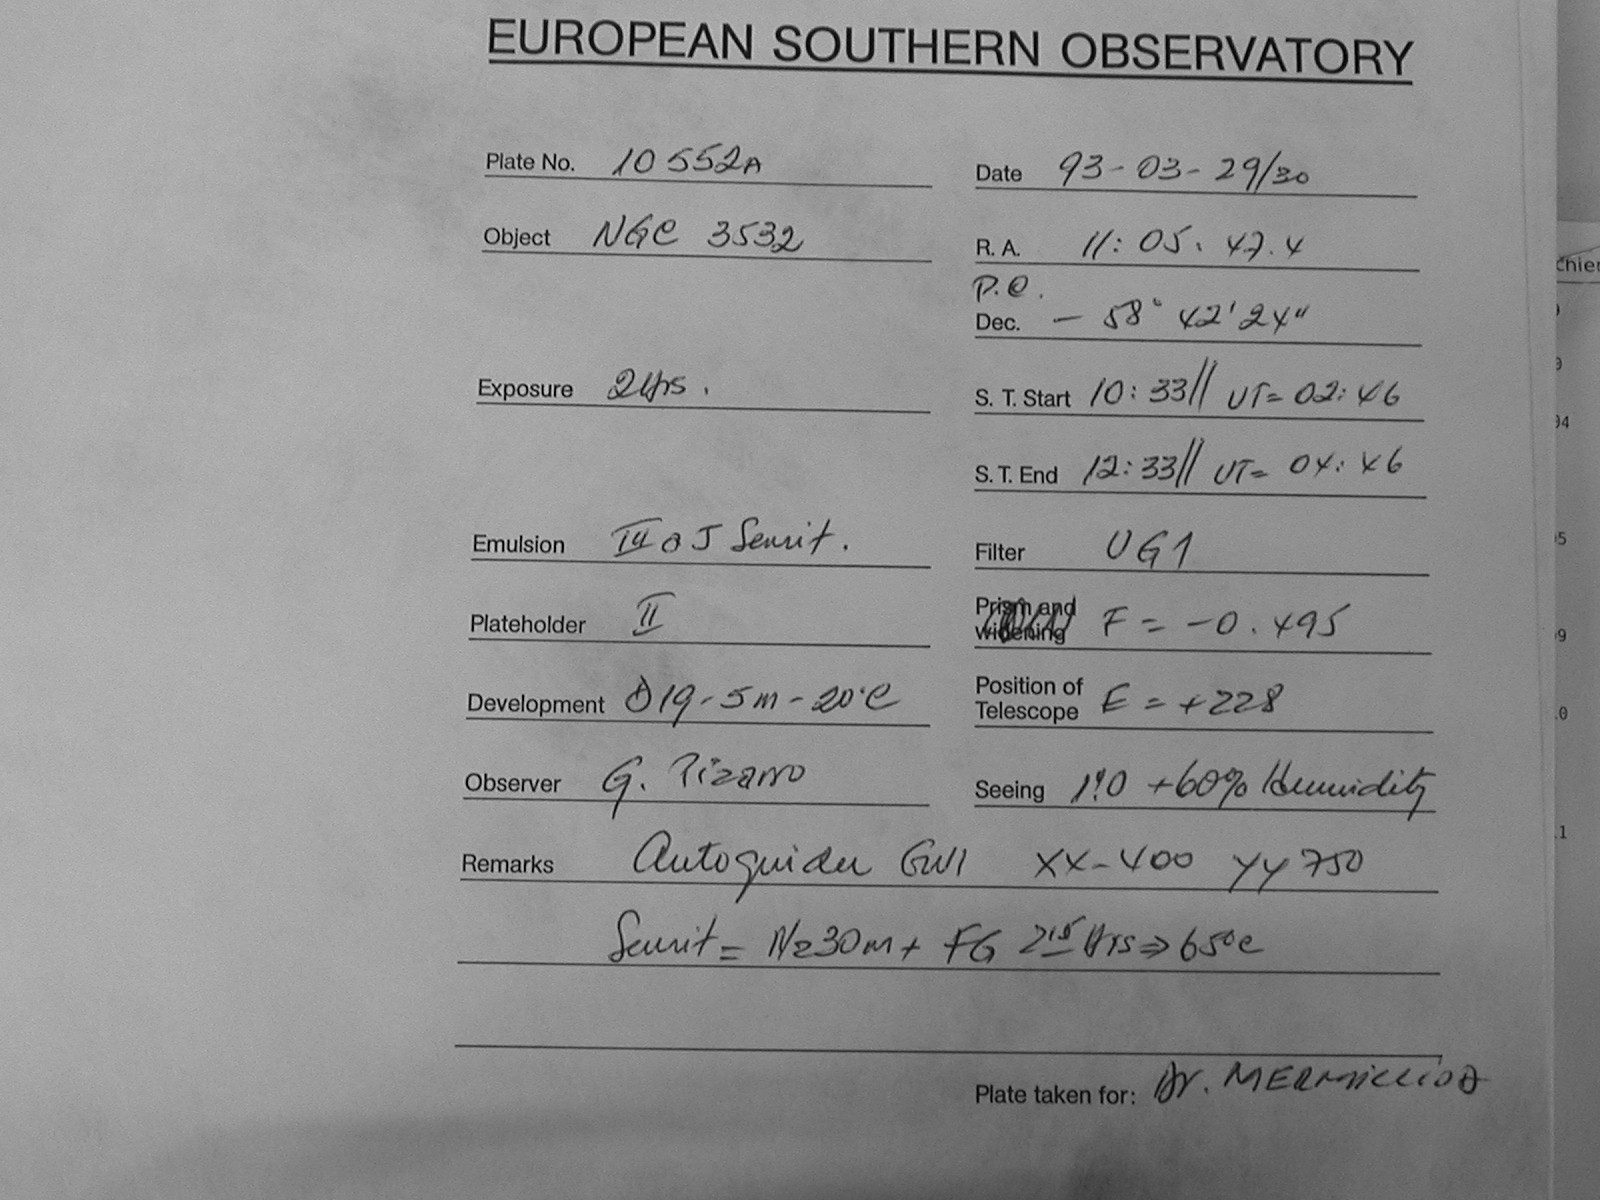 EUROPEAN SOUTHERN OBSERVATORY
Plate No. 10552A
Date 93-03-29/30
Object NGC 3532
R. A. 11: 05. 47.4
P.O.
Dec. - 58° 42' 24"
Exposure 2Hrs.
S. T. Start 10:33// UT= 02:46
S. T. End 12:33// UT= 04:46
Emulsion III a J Sensit.
Filter UG1
Plateholder II
Prism and
widening F = -0.495
Development D19-5m-20°C
Position of
Telescope E = +228
Observer G. Pizarro
Seeing 1"0 +60% Humidity
Remarks Autoguider GW1 XX-400 YY 750
Sensit= N230m+ FG Hrs⇒65°C
Plate taken for: Dr. MERMILLIOD
chier
94